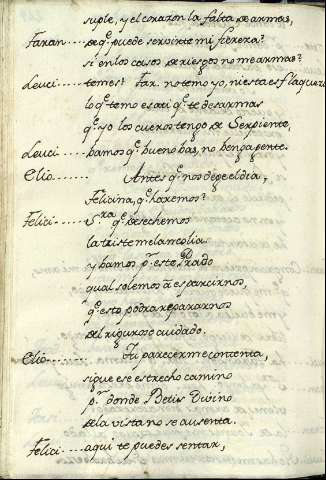 suple, y el corazon la falta de armas,
Faran.... de q̃ puede servirte mi fiereza?
si en los casos de riesgos no me armas?
Leuci...... temes? Far. no temo yo, ni esta es flaqueza
lo q̃ temo es a ti q̃ te desarmas
q̃ yo los cueros tengo de Serpiente,
Leuci..... bamos q̃ bueno bas, no benga gente.
Clio....... Antes q̃ nos dege el dia,
Feliçina, q̃ haremos?
Felici...... Sra q̃ desechemos
la triste melancolia
y bamos pr este Prado
qual solemos a esparcirnos,
q̃ esto podra repararnos
del riguroso cuidado.
Clio........ Tu parecer me contenta,
sigue ese estrecho camino
pr donde Betis Divino
de la vista no se ausenta.
Felici..... aqui te puedes sentar,